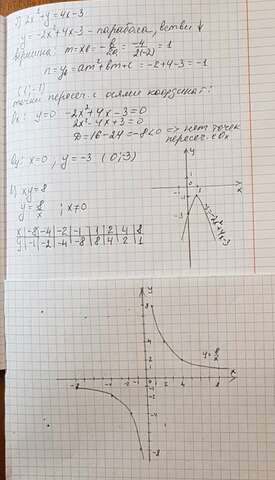 2x² + y = 4x - 3
y = -2x² + 4x - 3 - парабола, ветви ↓
вершина: m = x₀ = -b/2a = -4/2(-2) = 1
n = y₀ = am² + bm + c = -2 + 4 - 3 = -1
(1; -1)
точки пересеч. с осями координат:
Ox: y = 0 -2x² + 4x - 3 = 0
2x² - 4x + 3 = 0
D = 16 - 24 = -8 < 0 => нет точек
пересеч. с Ox
Oy: x = 0, y = -3 (0; -3)
xy = 8
y = 8/x ; x ≠ 0
x | -8 | -4 | -2 | -1 | 1 | 2 | 4 | 8
y | -1 | -2 | -4 | -8 | 8 | 4 | 2 | 1
y
x
y = -2x² + 4x - 3
y
8
y = 8/x
x
-8